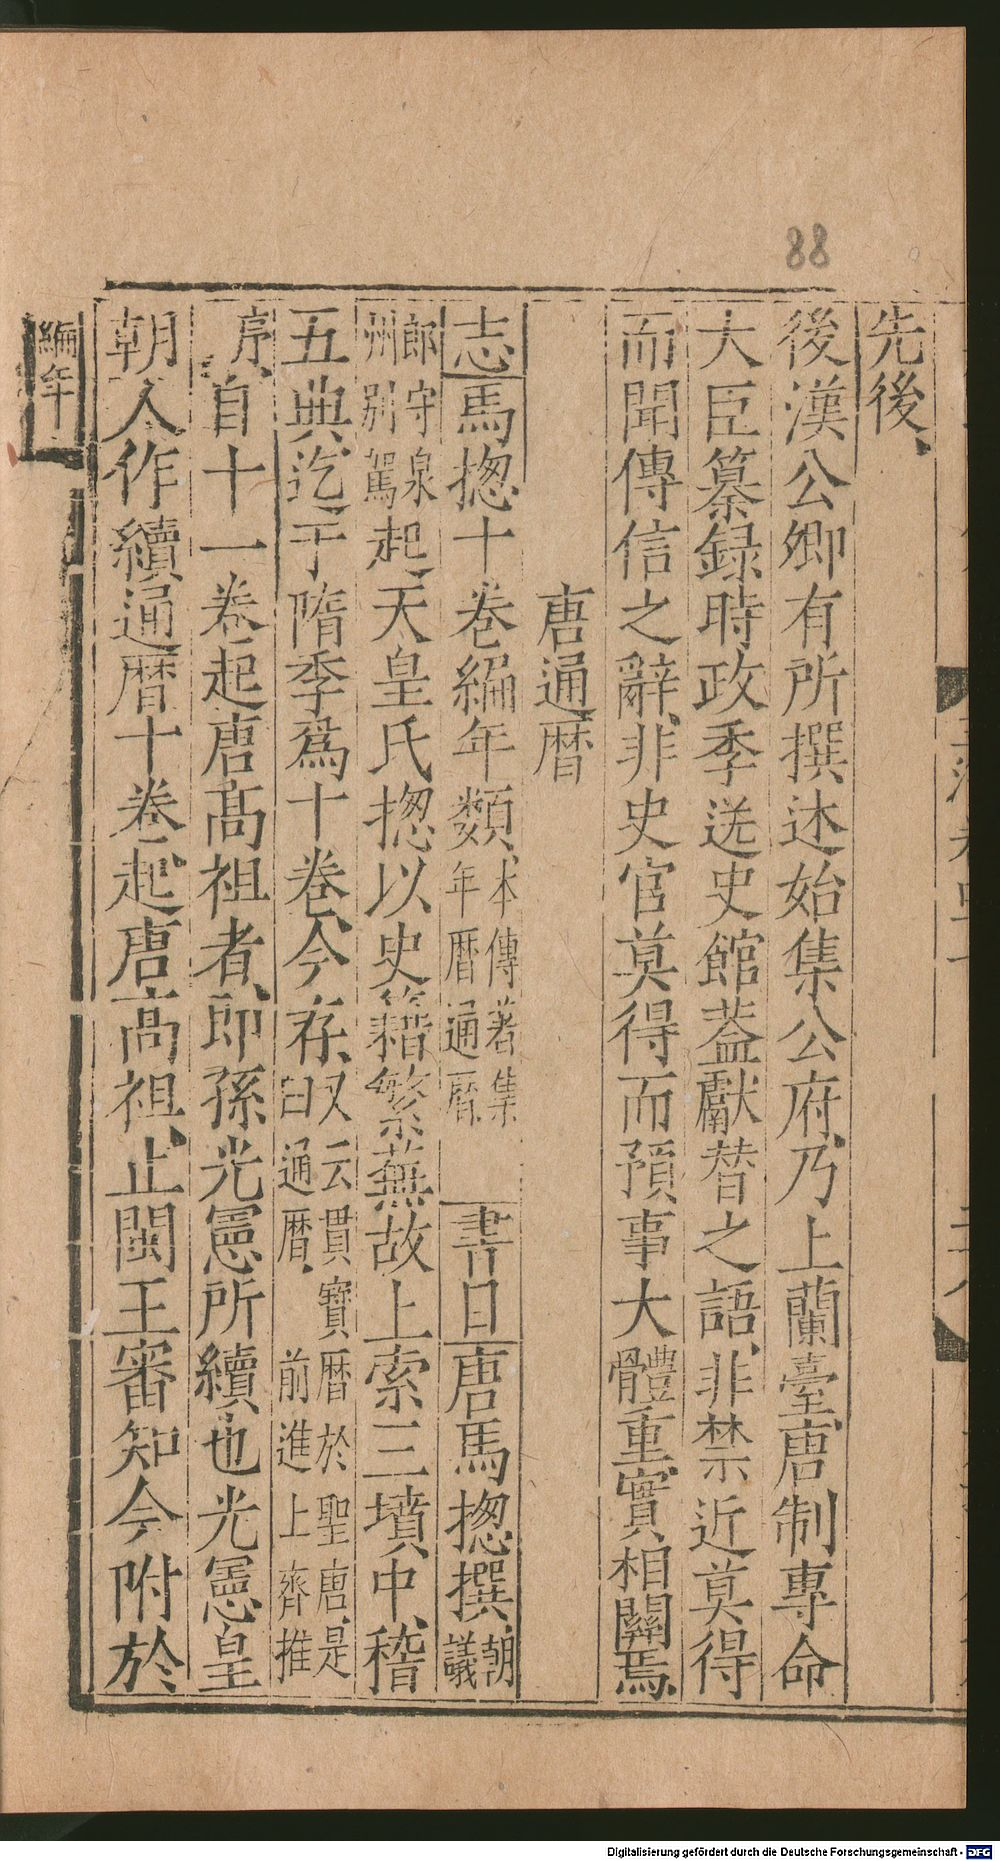 88
先後、
後漢公卿有所撰述始集公府、乃上蘭臺、唐制專命
大臣纂録時政季送史館蓋獻替之語、非禁近莫得
而聞傳信之辭、非史官莫得而預事大體重、實相關焉、
唐通曆
志馬揔十卷編年類、本傳著集年曆通曆、書目唐馬揔撰、朝議
郎守泉州別駕起、天皇氏揔以史籍繁蕪故上索三墳中、稽
五典、迄于隋季爲十卷、今存、又云貫寶曆於聖唐、是曰通曆、前進上齊推
序、自十一卷起唐高祖者、即孫光憲所續也光憲皇
朝人作續通曆十卷、起唐高祖、止閩王審知今附於
編年
Digitalisierung gefördert durch die Deutsche Forschungsgemeinschaft - DFG